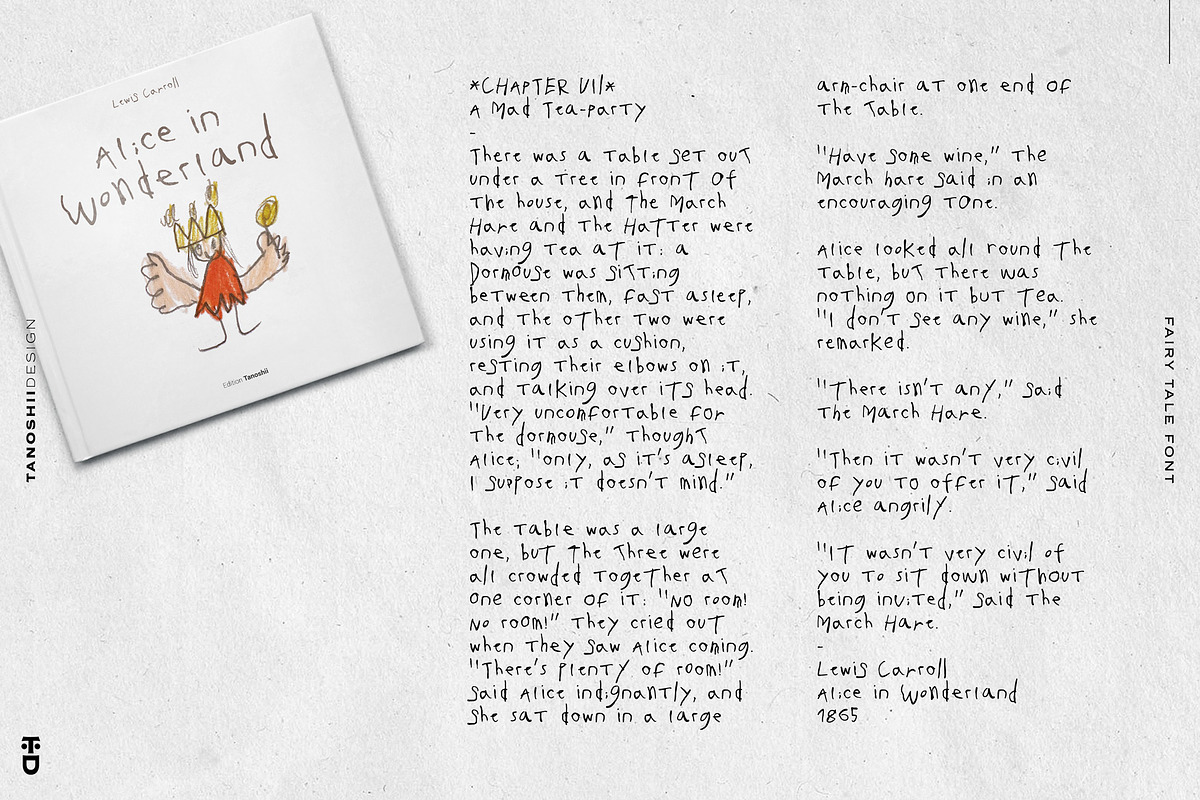 Lewis Carroll
Alice in
Wonderland
Edition Tanoshii
TANOSHIIDESIGN
T·D
*CHAPTER VII*
A Mad Tea-party
-
There was a table set out
under a tree in front of
the house, and the March
Hare and the Hatter were
having tea at it: a
Dormouse was sitting
between them, fast asleep,
and the other two were
using it as a cushion,
resting their elbows on it,
and talking over its head.
"Very uncomfortable for
the dormouse," thought
Alice; "only, as it's asleep,
I suppose it doesn't mind."
The table was a large
one, but the three were
all crowded together at
one corner of it: "No room!
No room!" They cried out
when they saw Alice coming.
"There's plenty of room!"
said Alice indignantly, and
she sat down in a large
arm-chair at one end of
the table.
"Have some wine," the
March hare said in an
encouraging tone.
Alice looked all round the
table, but there was
nothing on it but tea.
"I don't see any wine," she
remarked.
"There isn't any," said
the March Hare.
"Then it wasn't very civil
of you to offer it," said
Alice angrily.
"It wasn't very civil of
you to sit down without
being invited," said the
March Hare.
-
Lewis Carroll
Alice in Wonderland
1865
FAIRY TALE FONT